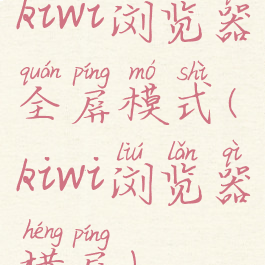 kiwi浏览器
quán píng mó shì
全屏模式(
liú lǎn qì
kiwi浏览器
héng píng
横屏)